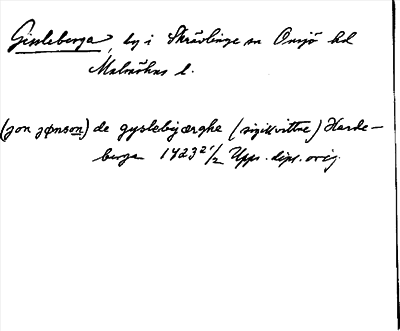 Gissleberga, by i Skrävlinge sn Onsjö hd
Malmöhus l.
(jon jønson) de gyslebyærghe (sigillvittne) Harde-
berga 1423 2/2 Upps. dipl. orig.